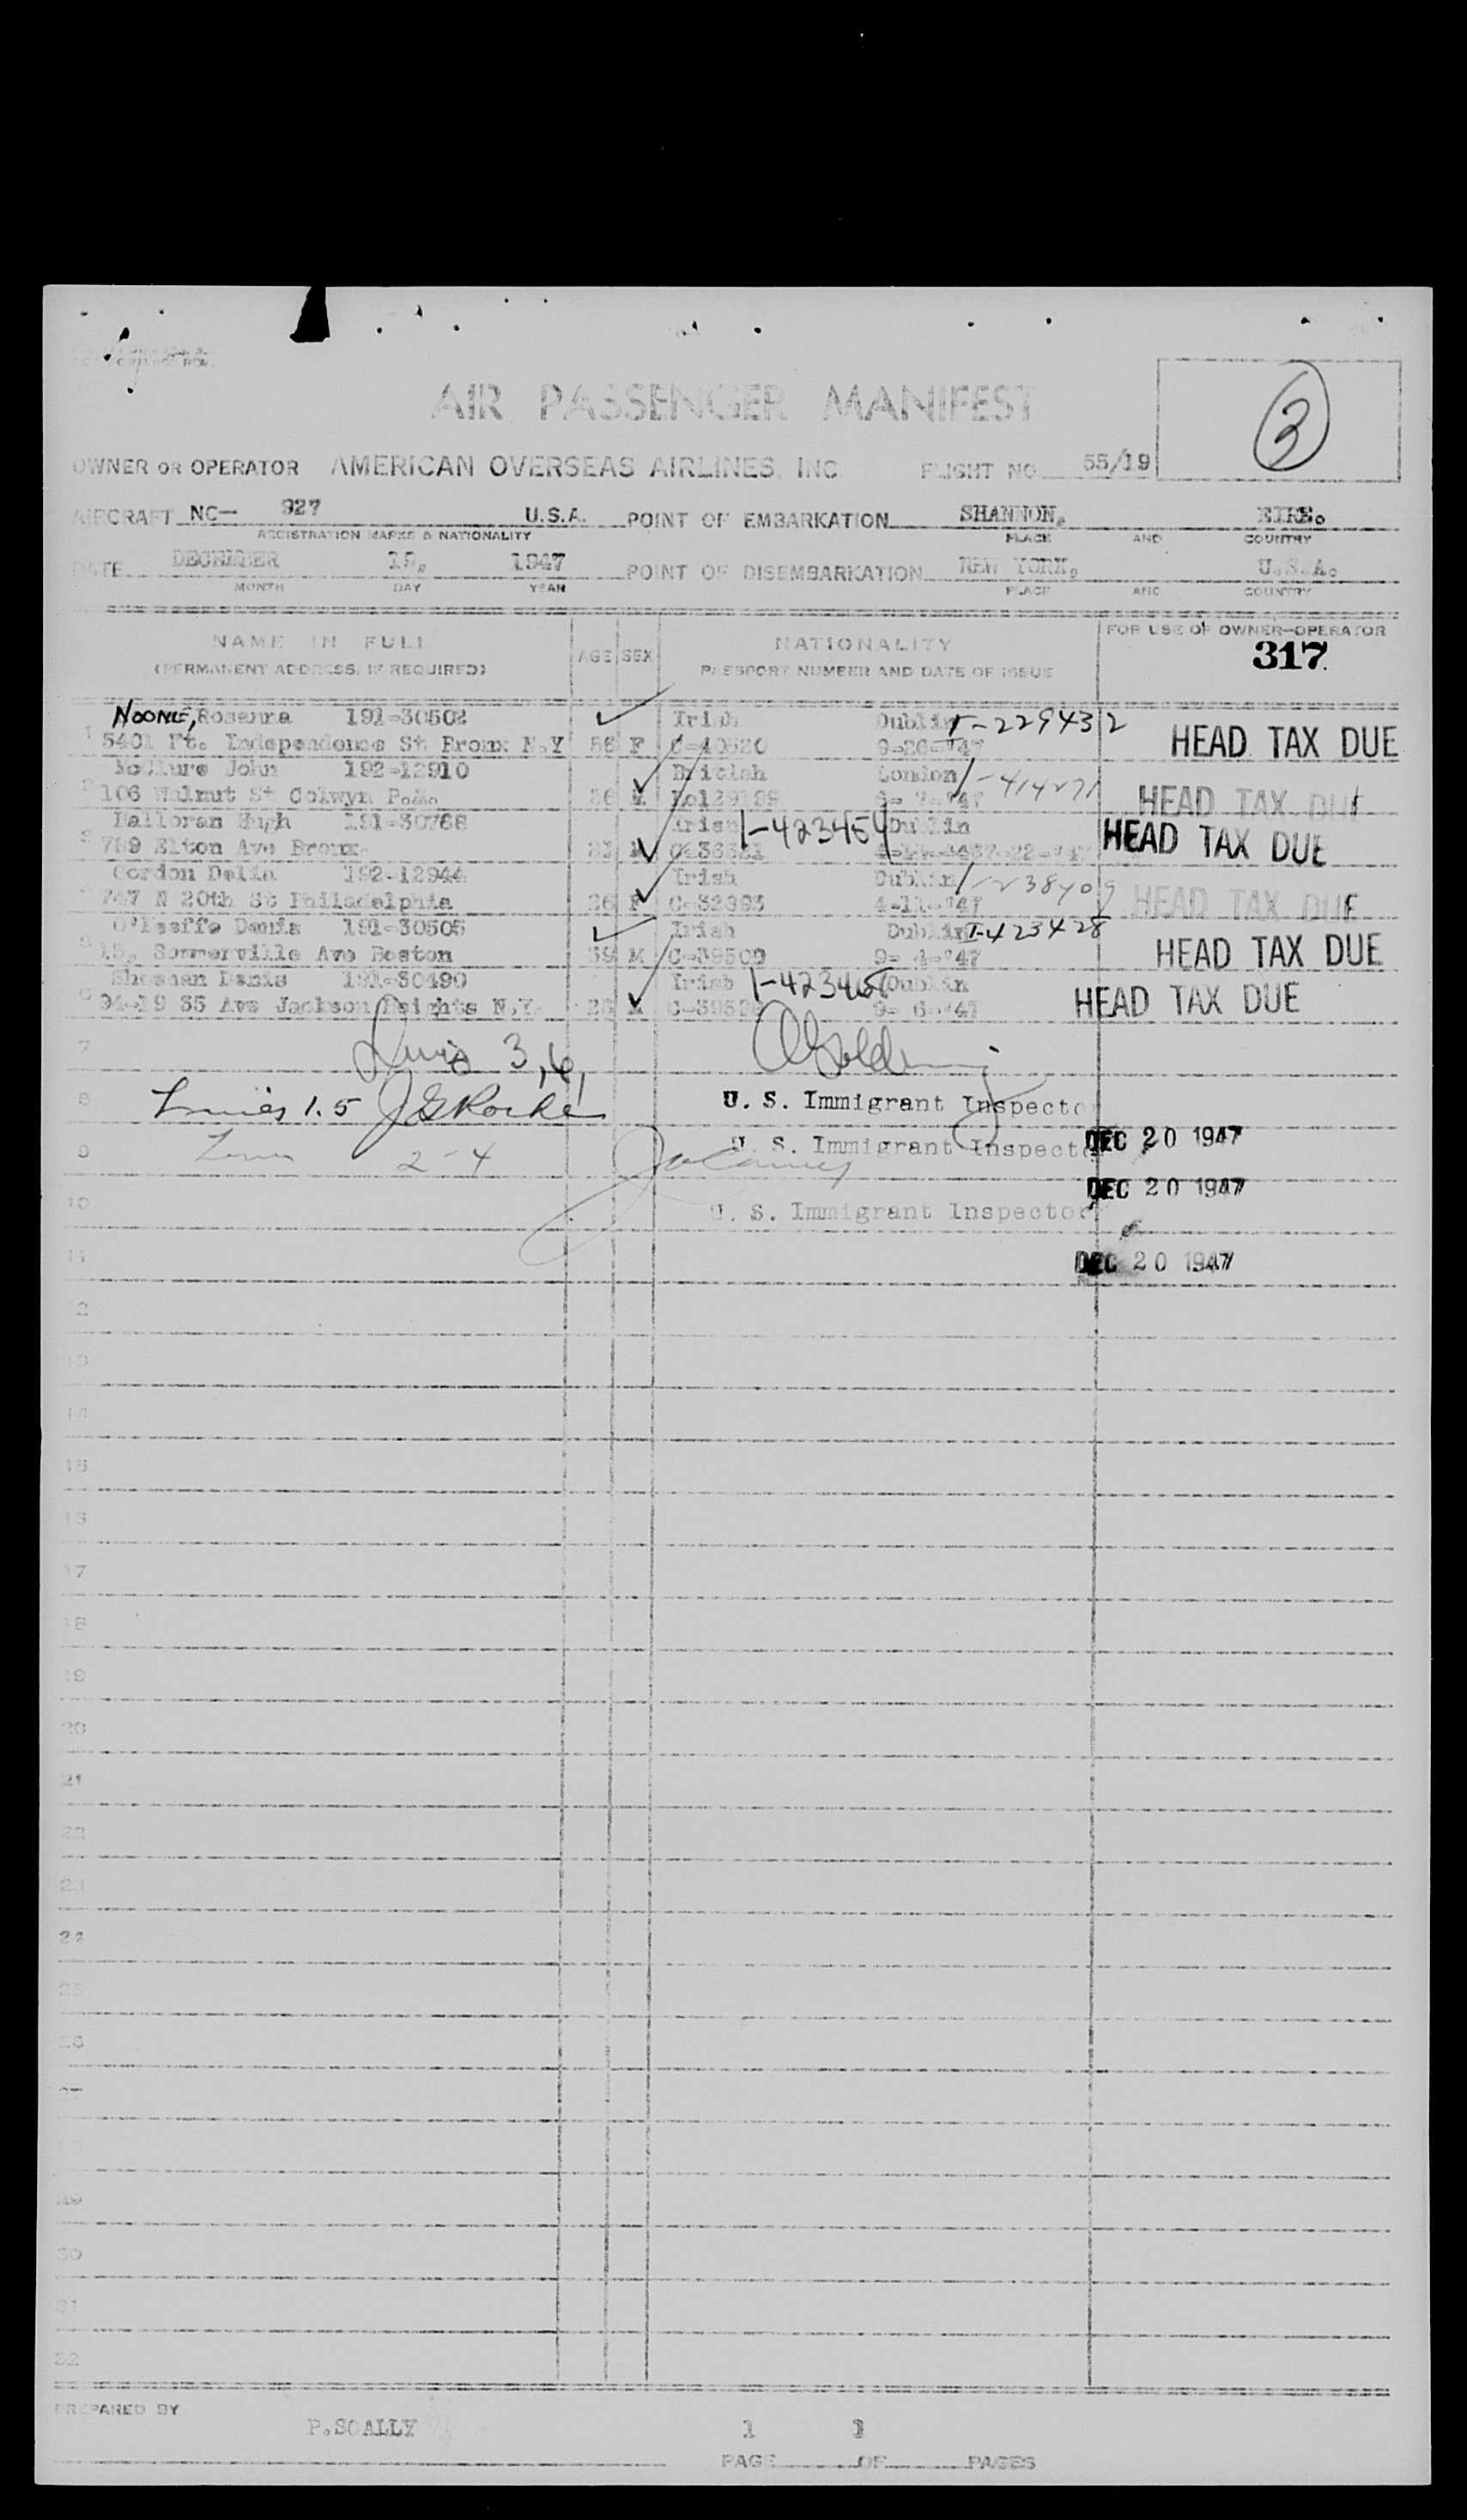 AIR PASSENGER MANIFEST
3
OWNER OR OPERATOR AMERICAN OVERSEAS AIRLINES, INC. FLIGHT NO. 55/19
AIRCRAFT NC- 927 U.S.A. POINT OF EMBARKATION SHANNON, EIRE.
REGISTRATION MARKS & NATIONALITY PLACE AND COUNTRY
DATE DECEMBER 19, 1947 POINT OF DISEMBARKATION NEW YORK, U.S.A.
MONTH DAY YEAR PLACE AND COUNTRY
NAME IN FULL AGE SEX NATIONALITY FOR USE OF OWNER-OPERATOR
(PERMANENT ADDRESS, IF REQUIRED) PASSPORT NUMBER AND DATE OF ISSUE 317
NOONE, Rosanna 191-30502 Irish Dublin I-229432
1 5401 Ft. Independence St Bronx N.Y 56 F C-40520 9-26-'47 HEAD TAX DUE
McClure John 192-12910 British London 1-414271
2 106 Walnut St Colwyn P.A. 36 M '47 HEAD TAX DUE
Halloran Hugh 191-30768 Irish 1-423454 Dublin
3 789 Elton Ave Bronx M HEAD TAX DUE
Gordon Delia 192-12944 Irish Dublin 1-238409
4 747 N 20th St Philadelphia 26 F C-32393 4-11-'47 HEAD TAX DUE
O'Keeffe Denis 191-30505 Irish Dublin I-423428
5 15, Sommerville Ave Boston 39 M C-39509 9- 4-'47 HEAD TAX DUE
Sheehan Denis 191-30490 Irish Dublin
6 94-19 35 Ave Jackson Heights N.Y. M 9- 6-'47 HEAD TAX DUE
7 Lines 3,6,
8 Lines 1.5 J G Rocke U. S. Immigrant Inspector
9 Lines 2-4 U. S. Immigrant Inspector DEC 20 1947
DEC 20 1947
10 U. S. Immigrant Inspector
11 DEC 20 1947
12
13
14
15
16
17
18
19
20
21
22
23
24
25
26
27
30
31
32
PREPARED BY
P.SCALLY 1 1
PAGE OF PAGES